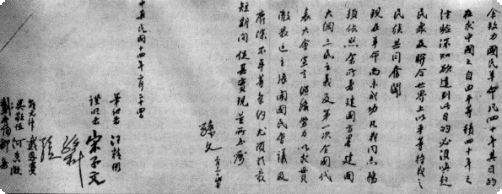 余致力國民革命凡四十年其目的
在求中國之自由平等積四十年之
經驗深知欲達到此目的必須喚起
民衆及聯合世界上以平等待我之
民族共同奮鬬
現在革命尚未成功凡我同志務
須依照余所著建國方略建國
大綱三民主義及第一次全國代
表大會宣言繼續努力以求貫
澈最近主張開國民會議及
廢除不平等條約尤須於最
短期間促其實現是所至囑
孫文
中華民國十四年二月二十四日
筆記者 汪精衛
證明者 宋子文
孫科
邵元沖 戴恩賽
吳敬恒 何香凝
戴季陶 鄒魯